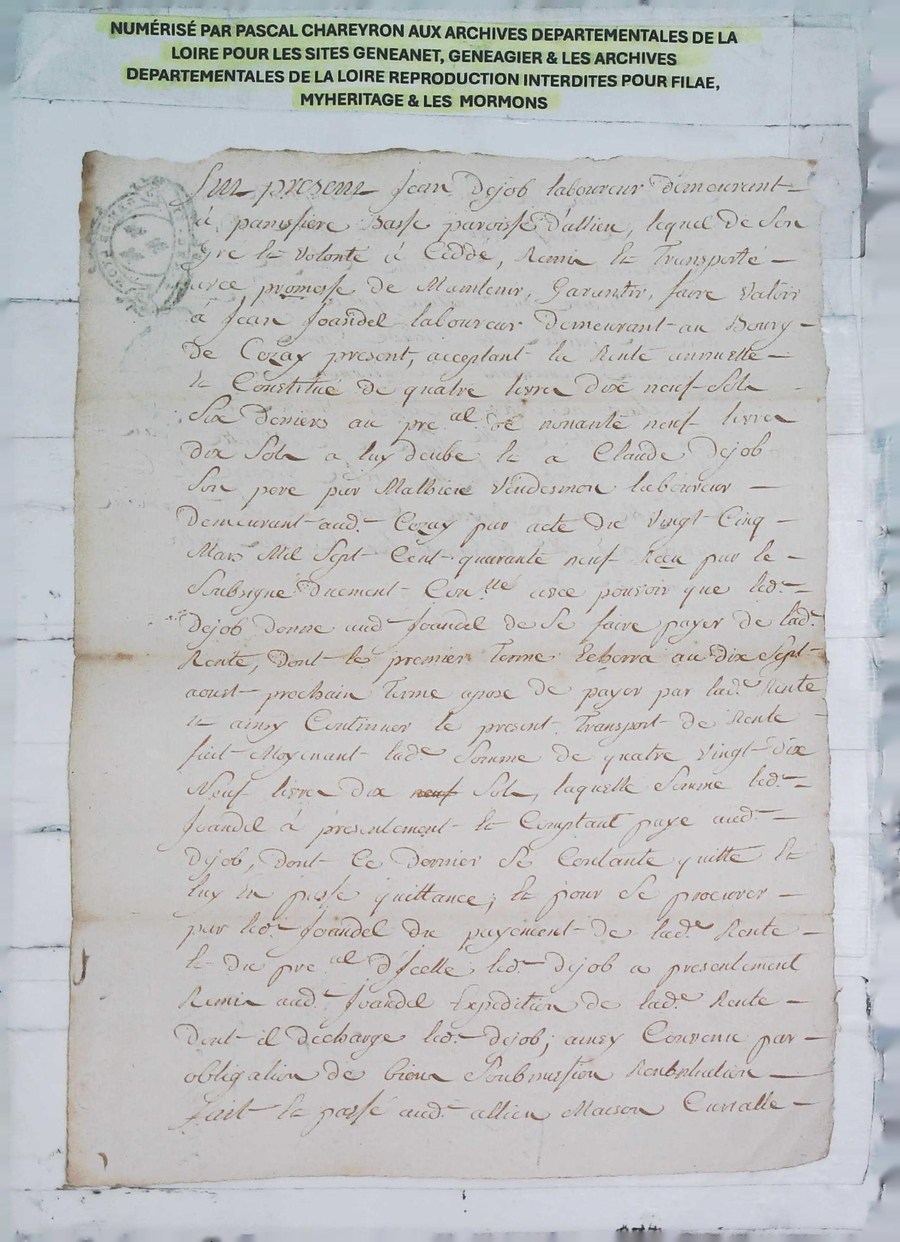 NUMÉRISÉ PAR PASCAL CHAREYRON AUX ARCHIVES DEPARTEMENTALES DE LA
LOIRE POUR LES SITES GENEANET, GENEAGIER & LES ARCHIVES
DEPARTEMENTALES DE LA LOIRE REPRODUCTION INTERDITES POUR FILAE,
MYHERITAGE & LES MORMONS
Fut present Jean Dejob laboureur demeurant
à panissiere Basse paroisse d'allieu, lequel de Son
Gré et volonté à Ceddé, Remis et Transporté
avec promesse de Maintenir, Garantir, faire valoir
à Jean Joandel laboureur Demeurant au Bourg
de Cezay present, acceptant la Rente annuelle
et Constitué de quatre livres dixe neuf Sols
Six deniers au pre.al de nonante neuf livres
dix Sols a luy deube et a Claude Dejob
Son pere par Mathieu laboureur
Demeurant aud.t Cezay par acte du vingt Cinq
Mars Mil Sept Cent quarante neuf Receu par le
Soubsigné Duement Con.llé avec pouvoir que led.t
Dejob donne aud.t Joandel de Se faire payer de lad.e
Rente, dont le premier Terme Echerra au dix Sept
aoust prochain Terme de payer par lad.e Rente
et ainsy Continuer le present Transport de Rente
fait Moyenant lad.e Somme de quatre vingt dix
Neuf livres dix neuf Sols, laquelle Somme led.t
Joandel à presentement et Comptant payé aud.t
Dejob, dont Ce dernier Se Contante quitte et
luy en passe quittance; et pour Se procurer
par led.t Joandel du payement de lad.e Rente
et du pre.al d'Icelle led.t Dejob a presentement
Remis aud.t Joandel Expedition de lad.e Rente
Dont il décharge led.t Dejob; ainsy Convenu par
obligation de biens Soubmission
Fait et passé aud.t allieu Maison Curialle